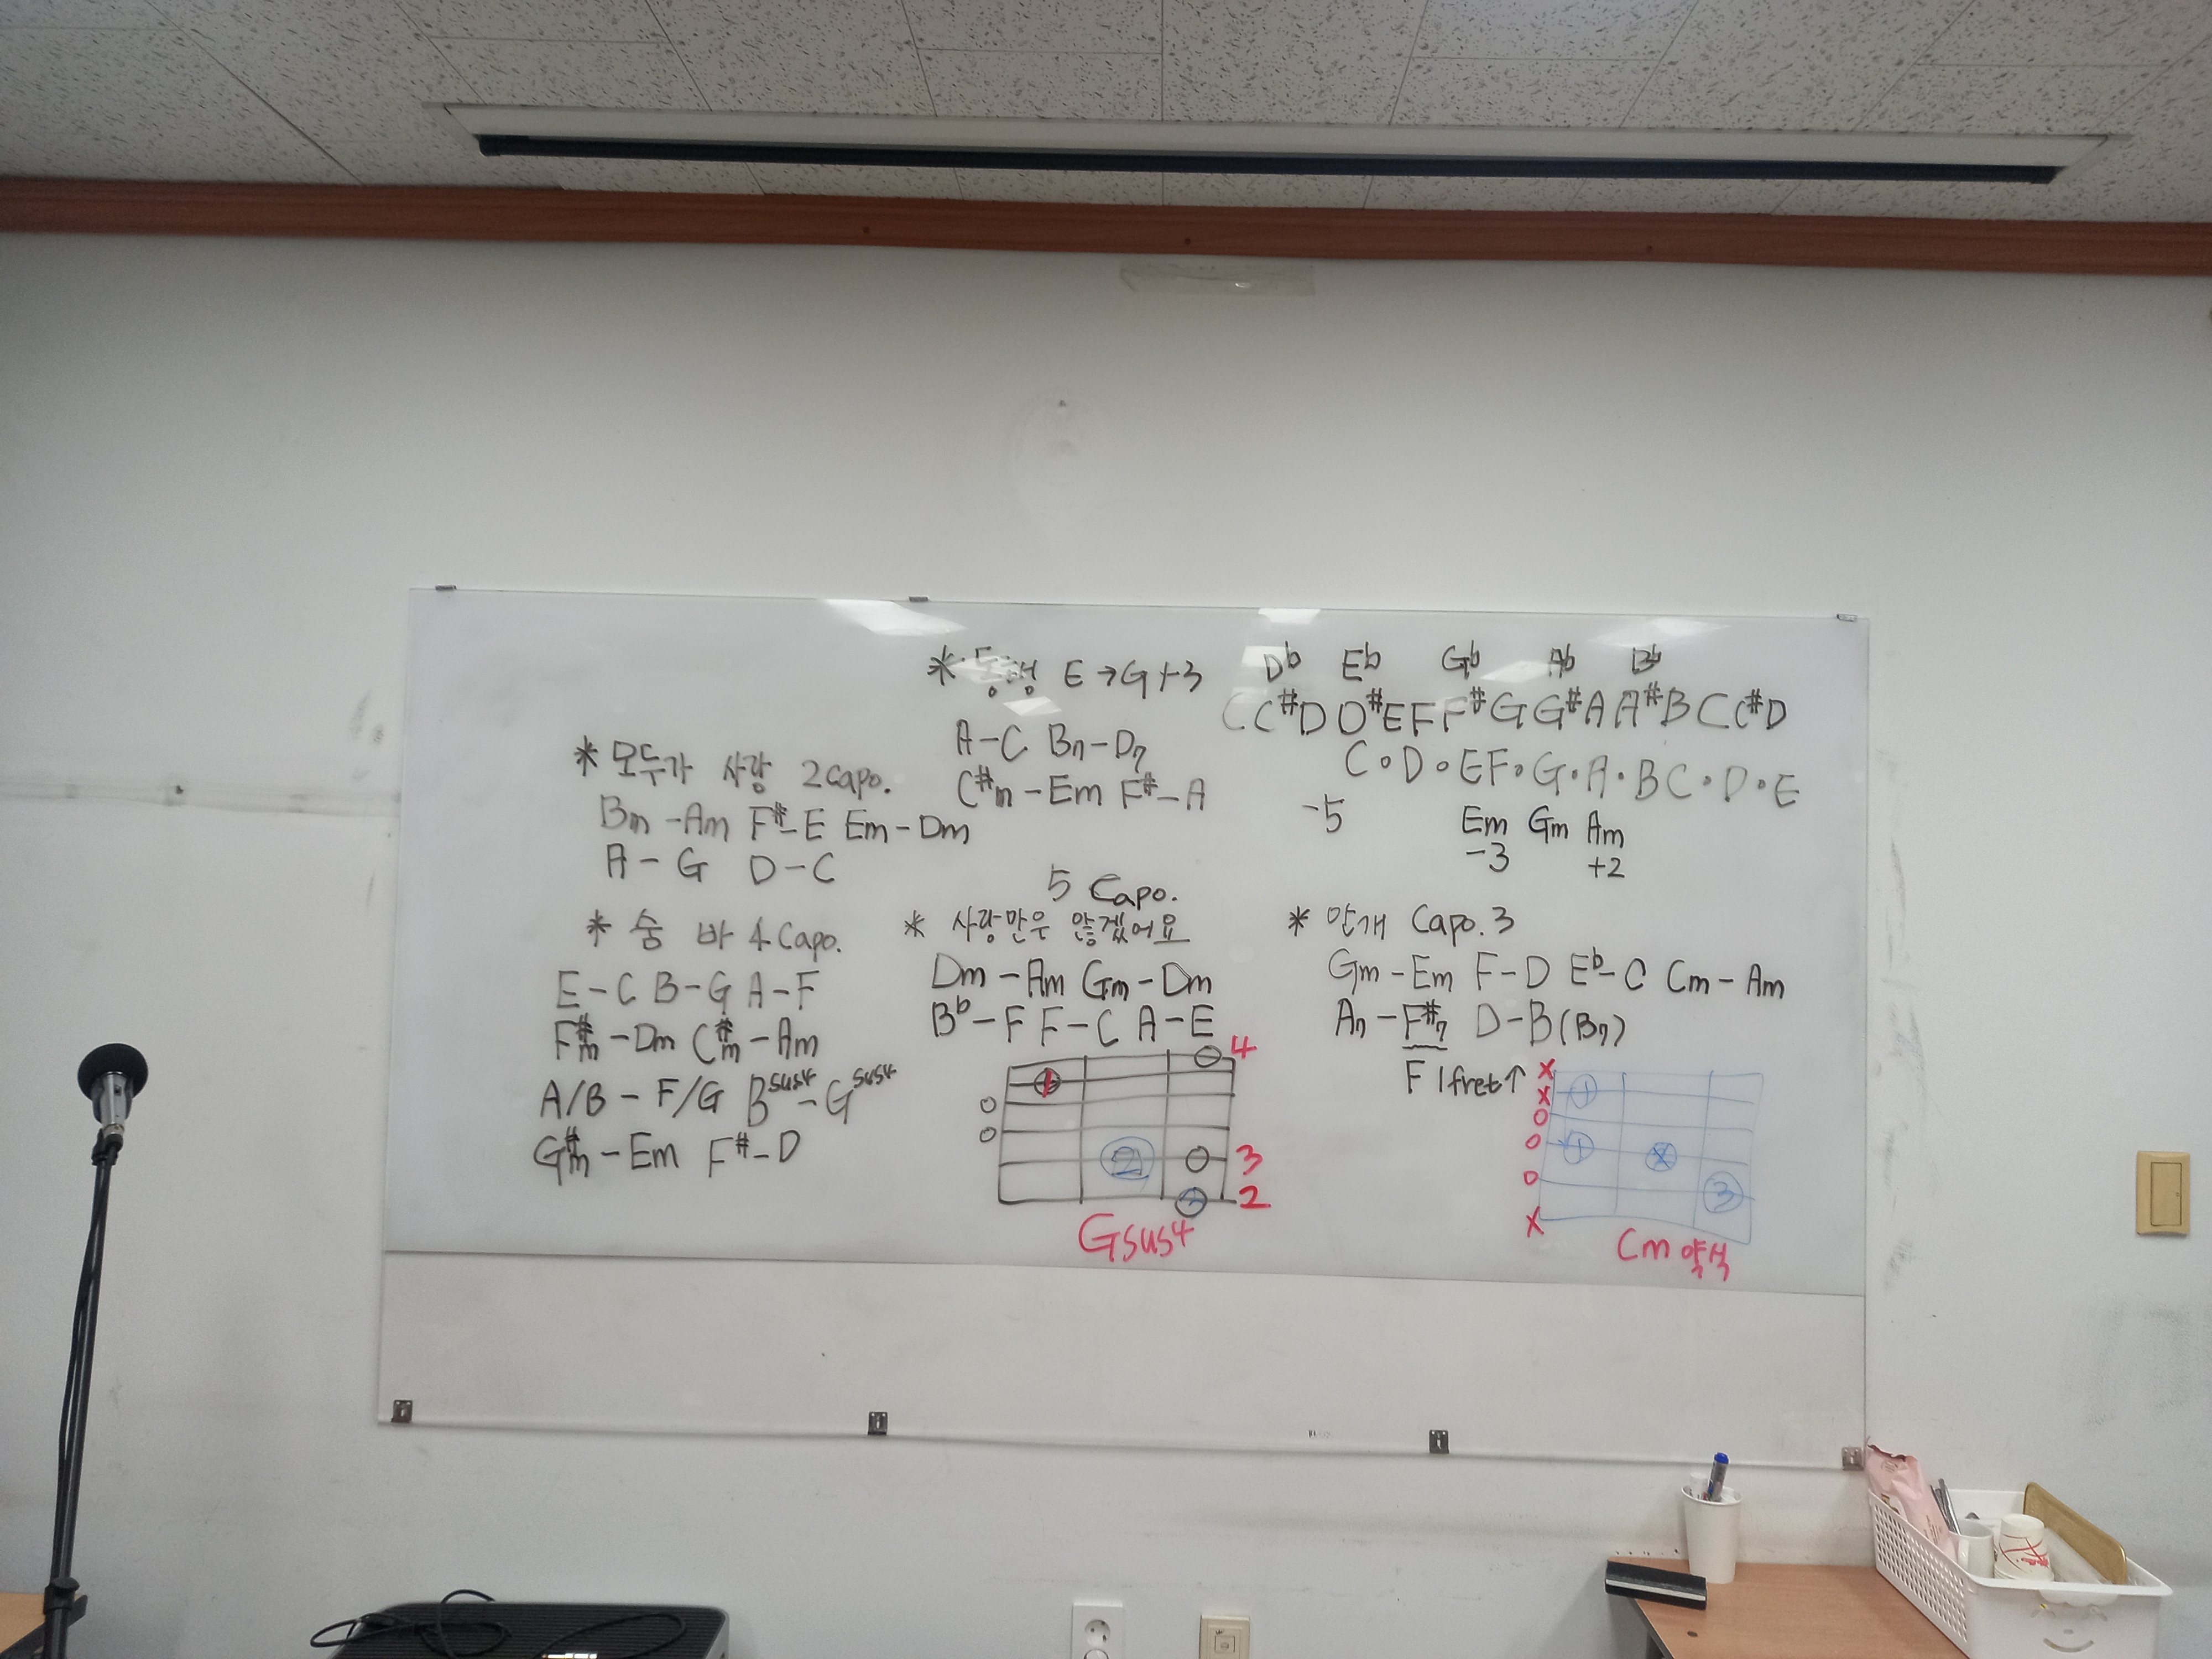 * 모두가 사랑 2capo.
Bm - Am F# - E Em - Dm
A - G D - C
* 숨 바 4 Capo.
E - C B - G A - F
F#m - Dm C#m - Am
A/B - F/G Bsus4 - Gsus4
G#m - Em F# - D
* 동행 E → G +3
A - C B7 - D7
C#m - Em F# - A
5 Capo.
* 사랑만은 않겠어요
Dm - Am Gm - Dm
Bb - F F - C A - E
4
1
2
3
2
Gsus4
Db Eb Gb Ab Bb
C C# D D# E F F# G G# A A# B C C# D
C • D • E F • G • A • B C • D • E
-5
Em Gm Am
-3 +2
* 안개 Capo. 3
Gm - Em F - D Eb - C Cm - Am
A7 - F#7 D - B (B7)
F 1fret ↑
x
x
o
o
o
x
1
1
3
Cm 약식